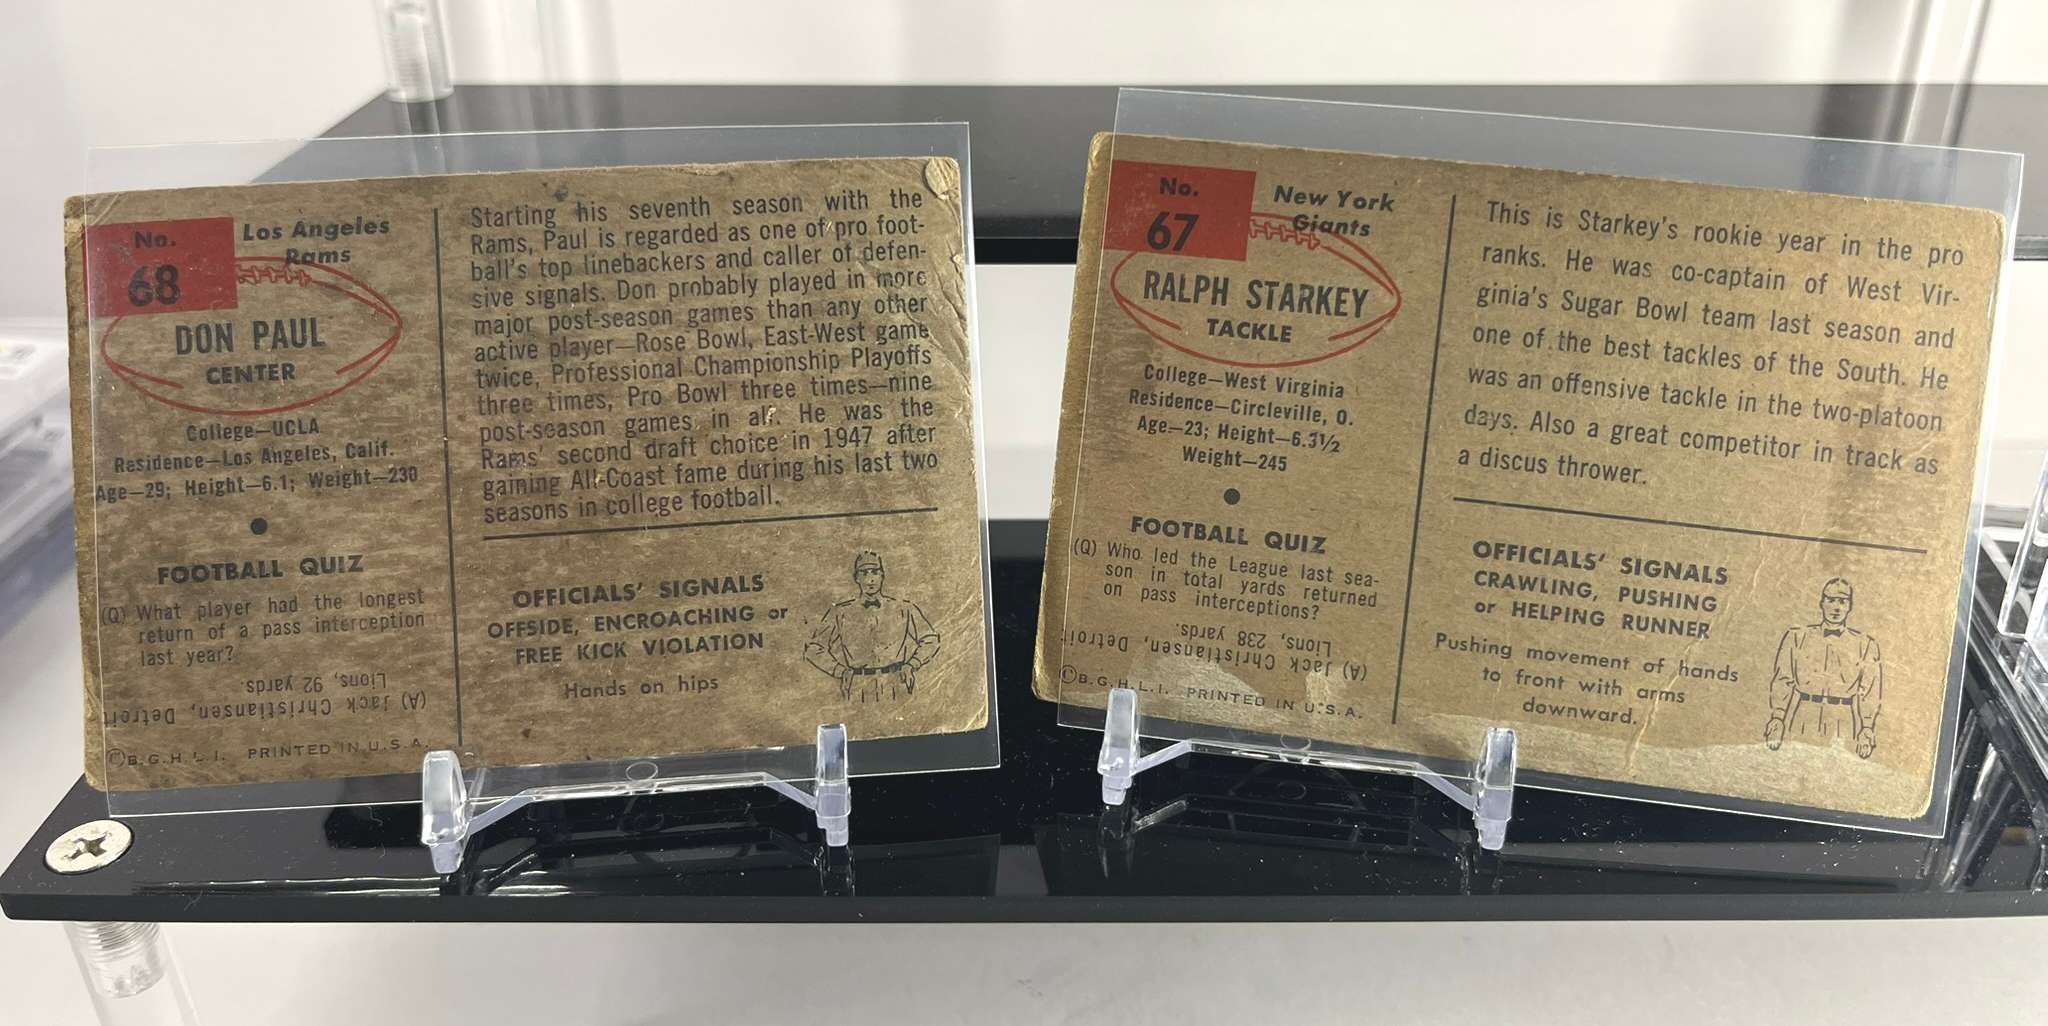 No.
68
Los Angeles
Rams
DON PAUL
CENTER
College—UCLA
Residence—Los Angeles, Calif.
Age—29; Height—6.1; Weight—230
FOOTBALL QUIZ
(Q) What player had the longest
return of a pass interception
last year?
(A) Jack Christiansen, Detroit
Lions, 92 yards.
©B.G.H.L.I. PRINTED IN U.S.A.
Starting his seventh season with the
Rams, Paul is regarded as one of pro foot-
ball's top linebackers and caller of defen-
sive signals. Don probably played in more
major post-season games than any other
active player—Rose Bowl, East-West game
twice, Professional Championship Playoffs
three times, Pro Bowl three times—nine
post-season games in all. He was the
Rams' second draft choice in 1947 after
gaining All-Coast fame during his last two
seasons in college football.
OFFICIALS' SIGNALS
OFFSIDE, ENCROACHING or
FREE KICK VIOLATION
Hands on hips
No.
67
New York
Giants
RALPH STARKEY
TACKLE
College—West Virginia
Residence—Circleville, O.
Age—23; Height—6.3½
Weight—245
FOOTBALL QUIZ
(Q) Who led the League last sea-
son in total yards returned
on pass interceptions?
(A) Jack Christiansen, Detroit
Lions, 238 yards.
©B.G.H.L.I. PRINTED IN U.S.A.
This is Starkey's rookie year in the pro
ranks. He was co-captain of West Vir-
ginia's Sugar Bowl team last season and
one of the best tackles of the South. He
was an offensive tackle in the two-platoon
days. Also a great competitor in track as
a discus thrower.
OFFICIALS' SIGNALS
CRAWLING, PUSHING
or HELPING RUNNER
Pushing movement of hands
to front with arms
downward.